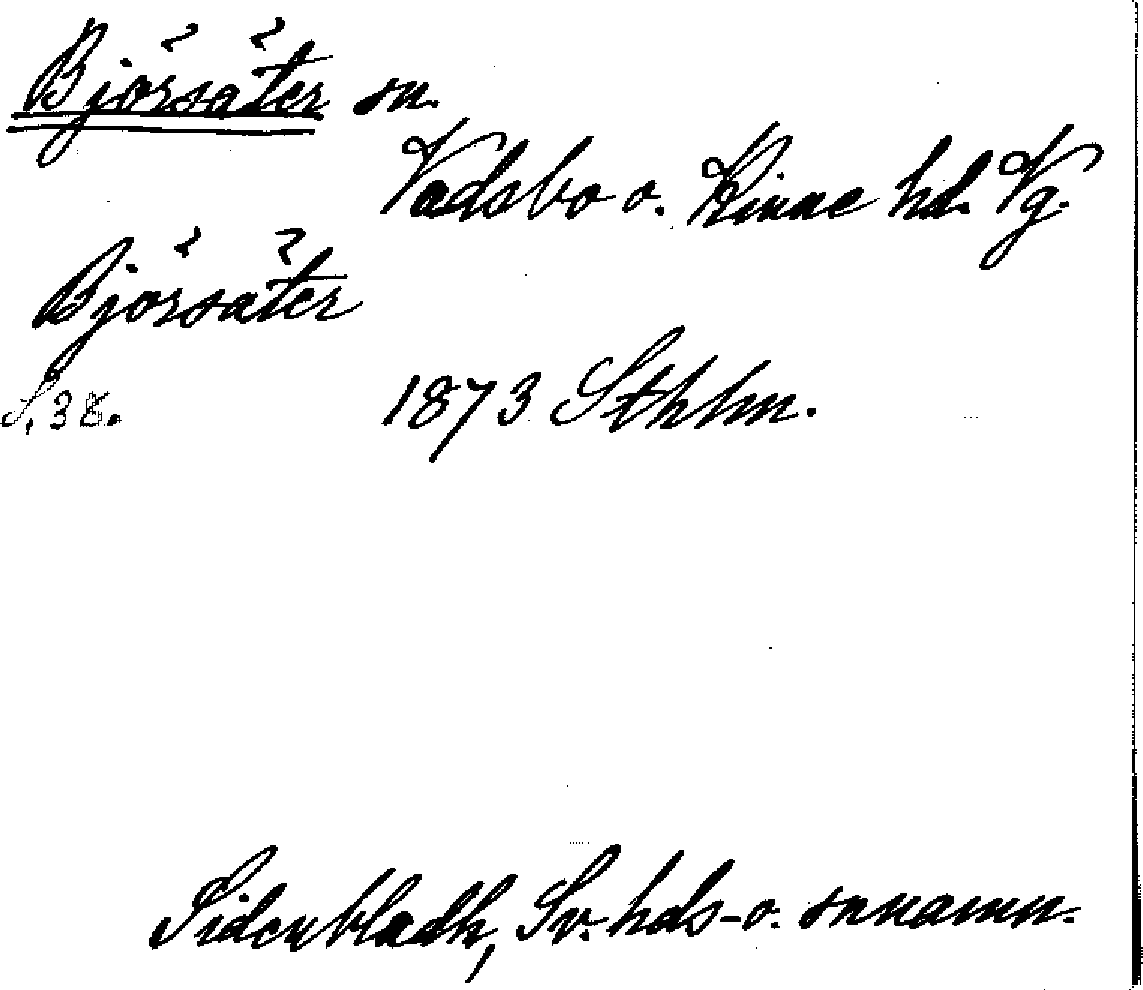 Björsäter sn.
Vadsbo o. Kinne hd. Vg.
Björsäter
S. 38. 1873 Sthlm.
Sidenbladh, Sv. hds- o. snnamn.